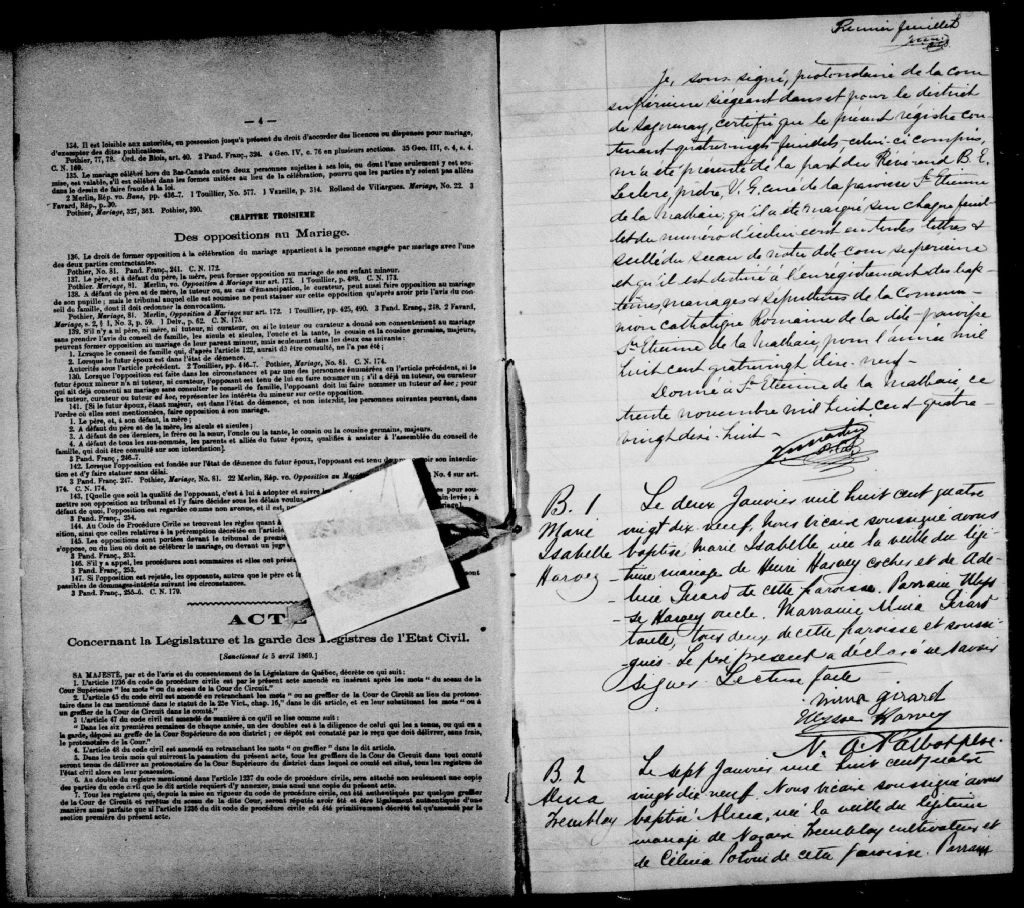 — 4 —
134. Il est loisible aux autorités, en possession jusqu'à présent du droit d'accorder des licences ou dispenses pour mariage,
d'exempter des dites publications.
Pothier, 77, 78. Ord. de Blois, art. 40. 2 Pand. Franç., 324. 4 Geo. IV, c. 76 en plusieurs sections. 35 Geo. III, c. 4, s. 4.
C. N. 169.
135. Le mariage célébré hors du Bas-Canada entre deux personnes sujettes à ses lois, ou dont l'une seulement y est sou-
mise, est valable, s'il est célébré dans les formes usitées au lieu de la célébration, pourvu que les parties n'y soient pas allées
dans le dessein de faire fraude à la loi.
2 Merlin, Rép. vo. Bans, pp. 436-7. 1 Touillier, No. 577. 1 Vazeille, p. 314. Rolland de Villargues. Mariage, No. 22. 3
Favard, Rép., p. 30.
Pothier, Mariage, 327, 363. Pothier, 390.
CHAPITRE TROISIEME
Des oppositions au Mariage.
136. Le droit de former opposition à la célébration du mariage appartient à la personne engagée par mariage avec l'une
des deux parties contractantes.
Pothier, No. 81. Pand. Franç., 241. C. N. 172.
137. Le père, et à défaut du père, la mère, peut former opposition au mariage de son enfant mineur.
Pothier, Mariage, 81. Merlin, vo. Opposition à Mariage sur art. 173. 1 Touillier, p. 489. C. N. 173.
138. A défaut de père et de mère, la tuteur ou, au cas d'émancipation, le curateur, peut aussi faire opposition au mariage
de son pupille; mais le tribunal auquel elle est soumise ne peut statuer sur cette opposition qu'après avoir pris l'avis du con-
seil de famille, dont il doit ordonner la convocation.
Pothier, Mariage, 81. Merlin, Opposition à Mariage sur art. 172. 1 Touillier, pp. 425, 490. 3 Pand. Franç., 218. 2 Favard,
Mariage, s. 2, § 1, No. 3, p. 59. 1 Delv., p. 62. C. N. 175.
139. S'il n'y a ni père, ni mère, ni tuteur, ni curateur, ou si le tuteur ou curateur a donné son consentement au mariage
sans prendre l'avis du conseil de famille, les aïeuls et aïeules, l'oncle et la tante, le cousin et la cousine germains, majeurs,
peuvent former opposition au mariage de leur parent mineur, mais seulement dans les deux cas suivants:
1. Lorsque le conseil de famille qui, d'après l'article 122, aurait dû être consulté, ne l'a pas été;
2. Lorsque le futur époux est dans l'état de démence.
Autorités sous l'article précédent. 2 Touillier, pp. 446-7. Pothier, Mariage, No. 81. C. N. 174.
130. Lorsque l'opposition est faite dans les circonstances et par une des personnes énumérées en l'article précédent, si le
futur époux mineur n'a ni tuteur, ni curateur, l'opposant est tenu de lui en faire nommer un; s'il a déjà un tuteur, ou curateur
qui ait déjà consenti au mariage sans consulter le conseil de famille, l'opposant doit lui faire nommer un tuteur ad hoc; pour
les tuteur, curateur ou tuteur ad hoc, représenter les intérêts du mineur sur cette opposition.
141. [Si le futur époux, étant majeur, est dans l'état de démence, et non interdit, les personnes suivantes peuvent, dans
l'ordre où elles sont mentionnées, faire opposition à son mariage.
1. Le père, et, à son défaut, la mère;
2. A défaut du père et de la mère, les aïeuls et aïeules;
3. A défaut de ces derniers, le frère ou la sœur, l'oncle ou la tante, le cousin ou la cousine germains, majeurs.
4. A défaut de tous les sus-nommés, les parents et alliés du futur époux, qualifiés à assister à l'assemblée du conseil de
famille, qui doit être consulté sur son interdiction].
3 Pand. Franç., 246-7.
142. Lorsque l'opposition est fondée sur l'état de démence du futur époux, l'opposant est tenu de son interdic-
tion et d'y faire statuer sans délai.
3 Pand. Franç. 247. Pothier, Mariage, No. 81. 22 Merlin, Rép. vo. Opposition au No. 4 sur art.
174. C. N. 174.
143. [Quelle que soit la qualité de l'opposant, c'est à lui à adopter et suivre pour sou-
mettre son opposition au tribunal et l'y faire décider sous les délais
défaut de quoi, l'opposition est regardée comme non avenue, et il est,
3 Pand. Franç., 254.
144. Au Code de Procédure Civile se trouvent les règles quant à
sition, ainsi que celles relatives à la péremption décrétée en l'article
145. Les oppositions sont portées devant le tribunal de premi
s'oppose, ou du lieu où doit se célébrer le mariage, ou devant un juge
3 Pand. Franç., 253.
146. S'il y a appel, les procédures sont sommaires et elles ont
3 Pand. Franç. 253.
147. Si l'opposition est rejetée, les opposants, autres que le père et la
passibles de dommages-intérêts suivant les circonstances.
3 Pand. Franç., 255-6. C. N. 179.
ACTE
Concernant la Législature et la garde des Registres de l'Etat Civil.
[Sanctionné le 5 avril 1869.]
SA MAJESTÉ, par et de l'avis et du consentement de la Législature de Québec, décrète ce qui suit:
1. L'article 1236 du code de procédure civile est par le présent amendé en insérant après les mots "du sceau de la
Cour Supérieure" les mots "ou du sceau de la Cour de Circuit."
2. L'article 45 du code civil est amendé en retranchant les mots "ou au greffier de la Cour de Circuit au lieu du protono-
taire dans le cas mentionné dans le statut de la 25e Vict., chap. 16," dans le dit article, et en leur substituant les mots "ou à
un greffier de la Cour de Circuit dans le comté."
3 L'article 47 du code civil est amendé de manière à ce qu'il se lise comme suit:
"Dans les six premières semaines de chaque année, un des doubles est à la diligence de celui qui les a tenus, ou qui en a
la garde, déposé au greffe de la Cour Supérieure de son district; ce dépôt est constaté par le reçu que doit délivrer, sans frais,
le protonotaire de la Cour."
4. L'article 48 du code civil est amendé en retranchant les mots "ou greffier" dans le dit article.
5. Dans les trois mois qui suivront la passation du présent acte, tous les greffiers de la Cour de Circuit dans tout comté
seront tenus de délivrer au protonotaire de la Cour Supérieure du district dans lequel ce comté est situé, tous les registres de
l'état civil alors en leur possession.
6. Au double du registre mentionné dans l'article 1237 du code de procédure civile, sera attaché non seulement une copie
des parties du code civil que le dit article requiert d'y annexer, mais aussi une copie du présent acte.
7. Tous les registres qui, depuis la mise en vigueur du code de procédure civile, ont été authentiqués par quelque greffier
de la Cour de Circuit et revêtus du sceau de la dite Cour, seront réputés avoir été et être légalement authentiqués d'une
manière aussi parfaite que si l'article 1236 du dit code de procédure civile eût été primitivement décrété tel qu'amendé par la
section première du présent acte.
Premier feuillet
Je, sous signé, protonotaire de la cour
supérieure siégeant dans et pour le district
de Saguenay, certifie que le présent registre con-
tenant quatrevingts-feuillets-celui-ci compris,
m'a été présenté de la part du Révérend B. E.
Leclerc, prêtre, V. G. curé de la paroisse St Etienne
de la Malbaie; qu'il a été marqué sur chaque feuil-
let du numéro d'icelui écrit en toutes lettres &
scellé du sceau de notre dite cour supérieure
et qu'il est destiné à l'enregistrement des bap-
têmes, mariages & sépultures de la Commu-
nion catholique Romaine de la dite paroisse
St. Etienne de la Malbaie, pour l'année mil
huit cent quatrevingt dix-neuf-
Donné à St Etienne de la Malbaie, ce
trente novembre mil huit cent quatre
vingt dix-huit-
B. 1
Marie
Isabelle
Harvey
Le deux Janvier mil huit cent quatre
vingt dix neuf, Nous vicaire soussigné avons
baptisé Marie Isabelle née la veille du légi-
time mariage de Henri Harvey cocher et de Ade-
line Girard de cette paroisse. Parrain Ulys-
se Harvey oncle. Marraine Mina Girard
tante, tous deux de cette paroisse et soussi-
gnés. Le père présent a déclaré ne savoir
signer. Lecture faite
Mina Girard
Ulysse Harvey
N. A. Talbot ptre.
B. 2
Alma
Tremblay
Le sept Janvier mil huit cent quatre
vingt dix neuf Nous vicaire soussigné avons
baptisé Alma, née la veille du légitime
mariage de Nazaire Tremblay cultivateur et
de Célina Potvin de cette paroisse. Parrain